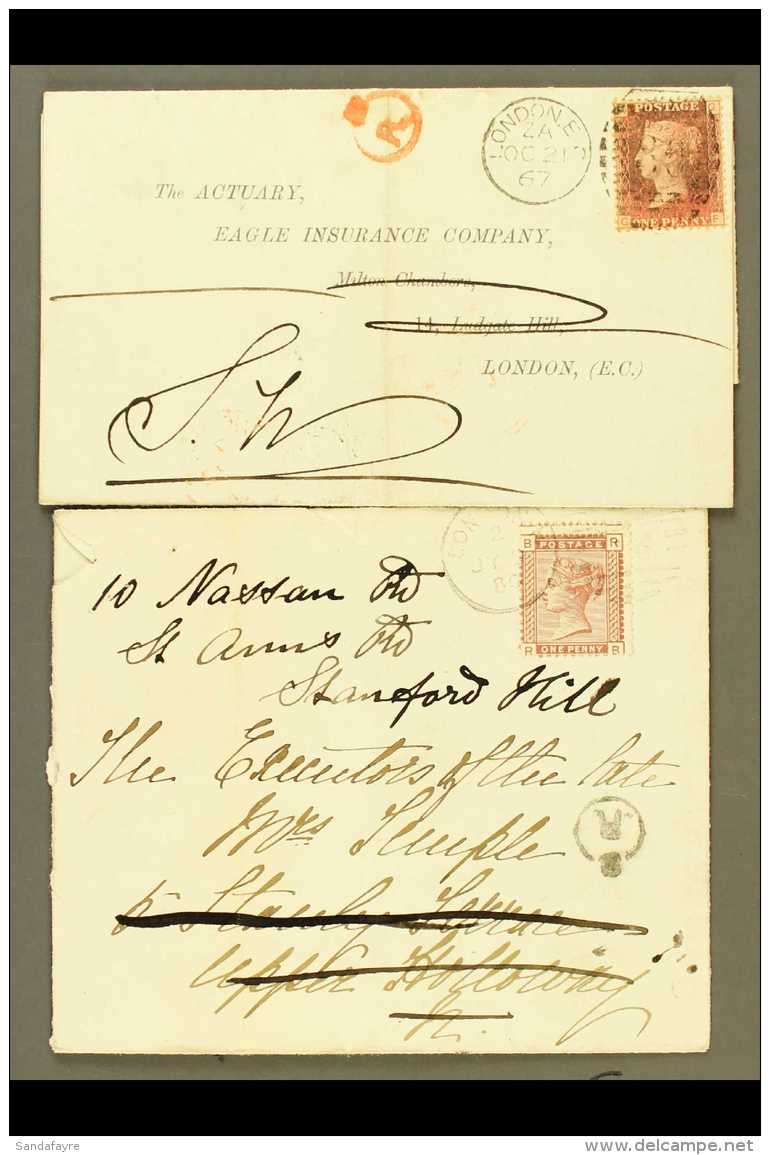 R
LONDON.E.C
ZA
OC 21
67
POSTAGE
ONE PENNY
The ACTUARY,
EAGLE INSURANCE COMPANY,
Milton Chambers,
14, Ludgate Hill,
LONDON, (E.C.)
S.W
B POSTAGE R
R ONE PENNY B
10 Nassau Rd
St Anns Rd
Stamford Hill
The Executors of the late
Mrs Temple
5 Stanley Terrace
Upper Holloway
N.
R
Sandafayre
delcampe.net